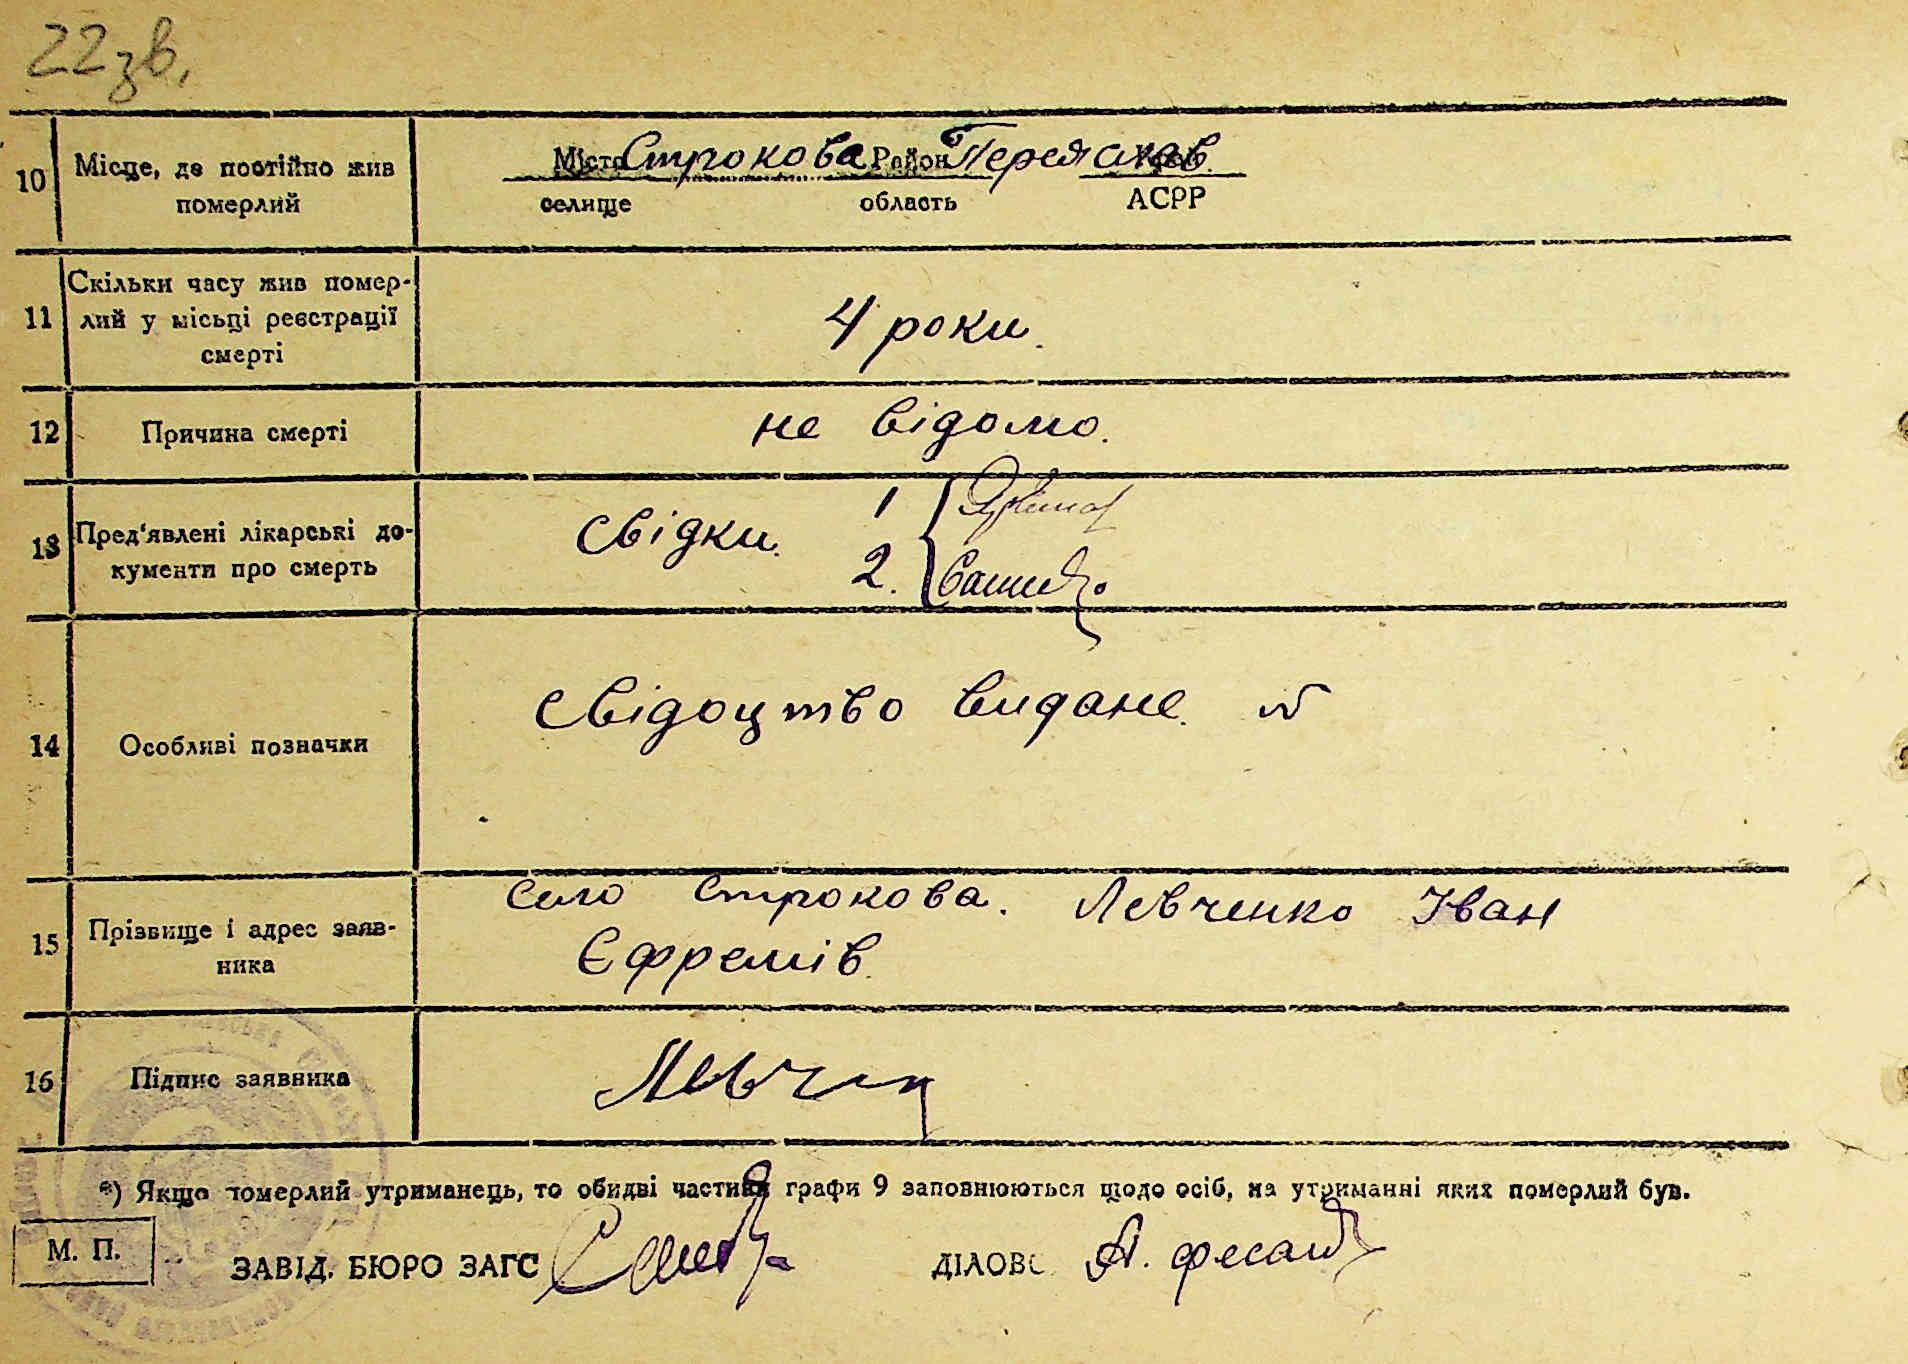 22 зв.
10 Місце, де постійно жив померлий
Місто Строкова Район Переяслав.
селище область АСРР
11 Скільки часу жив помер-
лий у місьці реєстрації
смерті
4 роки.
12 Причина смерті
не відомо.
13 Пред'явлені лікарські до-
кументи про смерть
Свідки. 1
2.
14 Особливі позначки
Свідоцтво видане. №
15 Прізвище і адрес заяв-
ника
Село Строкова. Левченко Іван
Єфремів.
16 Підпис заявника
Левчен
*) Якщо померлий утриманець, то обидві частини графи 9 заповнюються щодо осіб, на утриманні яких померлий був.
М. П.
ЗАВІД. БЮРО ЗАГС ДІЛОВ